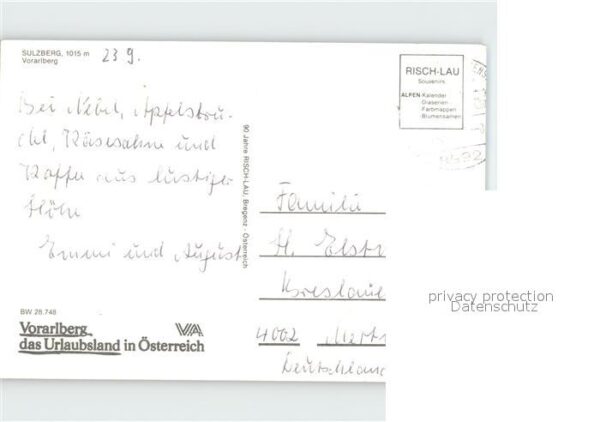 SULZBERG, 1015 m
Vorarlberg
23 9.
Bei Nebel, Apfelstru-
del, Käsesahne und
Kaffee aus lustiger
Höhe
Emmi und August
BW 28.748
Vorarlberg
das Urlaubsland in Österreich
VA
90 Jahre RISCH-LAU, Bregenz - Österreich
RISCH-LAU
Souvenirs
ALPEN-Kalender
Diaserien
Farbmappen
Blumensamen
Familie
H. Elst
Breslaue
4002 Mett
Deutschland
privacy protection
Datenschutz